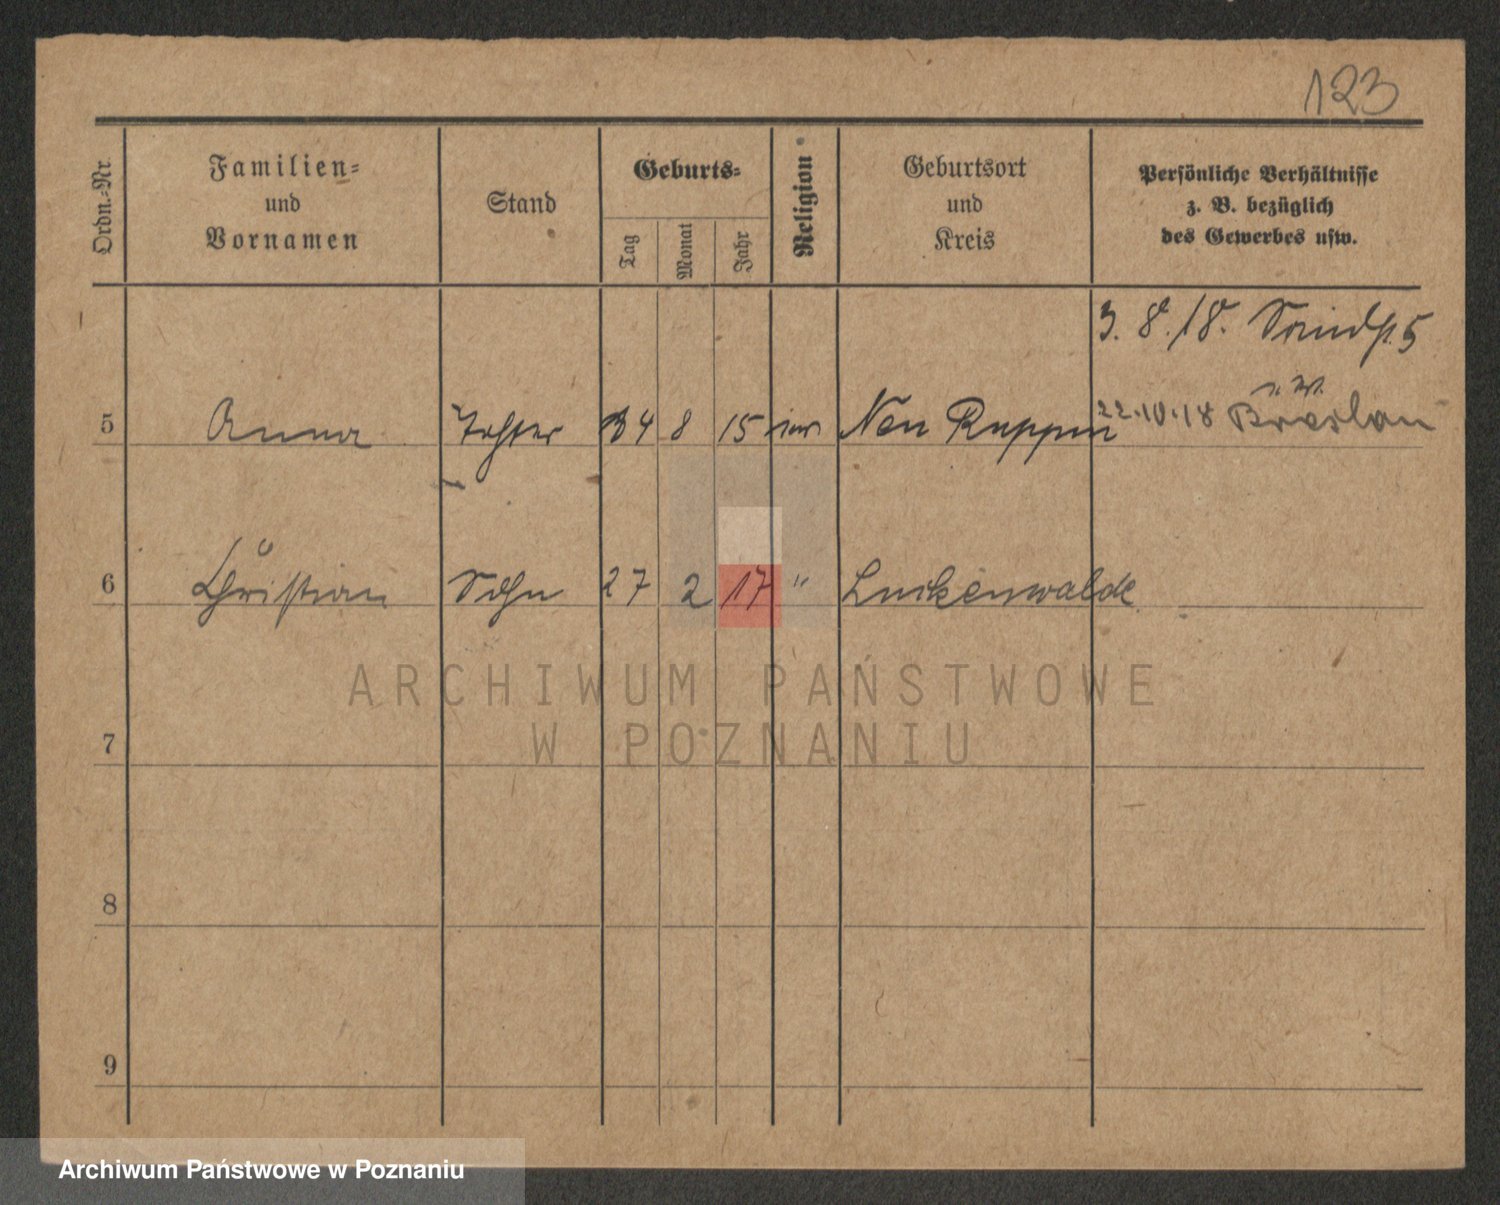 123
Ordn.-Nr.
Familien-
und
Vornamen
Stand
Geburts-
Tag
Monat
Jahr
Religion
Geburtsort
und
Kreis
Persönliche Verhältnisse
z. B. bezüglich
des Gewerbes usw.
3. 8. 18.
5 Anna Tochter 4 8 15 Neu Ruppin 22.10.18 Breslau
6 Christian Sohn 27 2 17 " Luckenwalde
ARCHIWUM PAŃSTWOWE
W POZNANIU
7
8
9
Archiwum Państwowe w Poznaniu